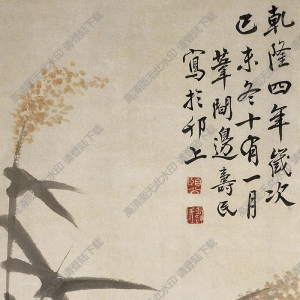 乾隆四年歲次
己未冬十有一月
葦間邊壽民
寫於卯上